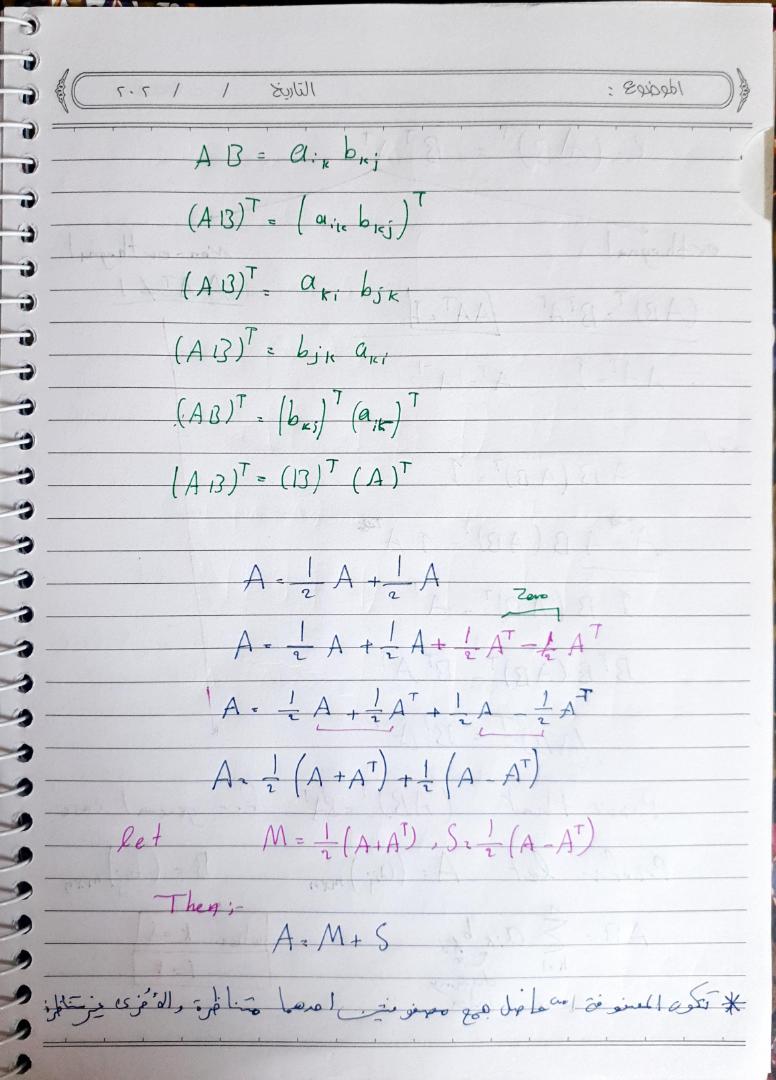 الموضوع : التاريخ / / ٢٠٢
A B = a_{ik} b_{kj}
(AB)^T = (a_{ik} b_{kj})^T
(AB)^T = a_{ki} b_{jk}
(AB)^T = b_{jk} a_{ki}
(AB)^T = (b_{kj})^T (a_{ik})^T
(AB)^T = (B)^T (A)^T
A = 1/2 A + 1/2 A
Zero
A = 1/2 A + 1/2 A + 1/2 A^T - 1/2 A^T
A = 1/2 A + 1/2 A^T + 1/2 A - 1/2 A^T
A = 1/2 (A + A^T) + 1/2 (A - A^T)
let M = 1/2 (A + A^T) , S = 1/2 (A - A^T)
Then :-
A = M + S
* تكون المصفوفة حاصل جمع مصفوفتين احدهما متناظرة والأخرى